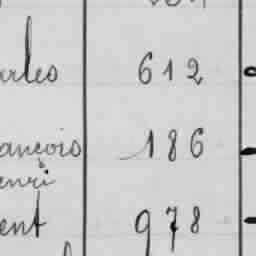 arles 612
ançois 186
enri
ent 978